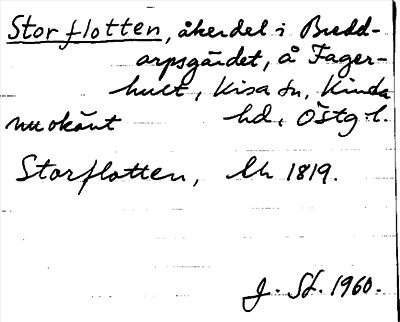 Storflotten, åkerdel i Budd-
arpsgärdet, å Fager-
hult, Kisa sn, Kinda
nu okänt hd, Östg l.
Storflotten, Lh 1819.
J. St. 1960.